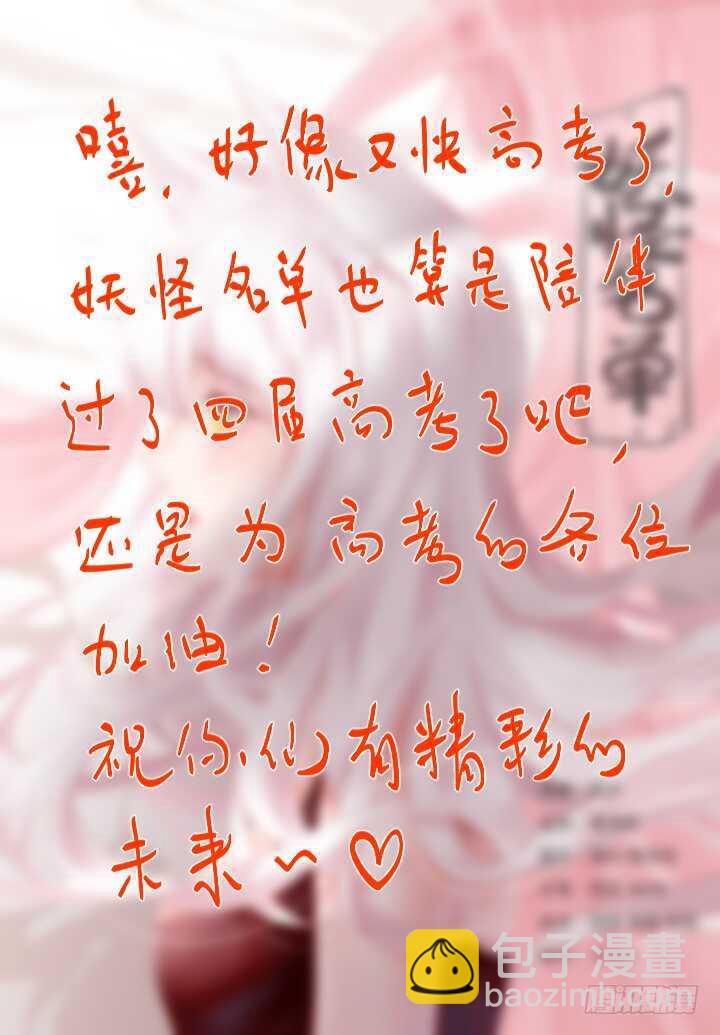 嘻，好像又快高考了，
妖怪名单也算是陪伴
过了四届高考了吧，
还是为高考的各位
加油！
祝你们有精彩的
未来～♡
妖怪名单
包子漫畫
baozimh.com